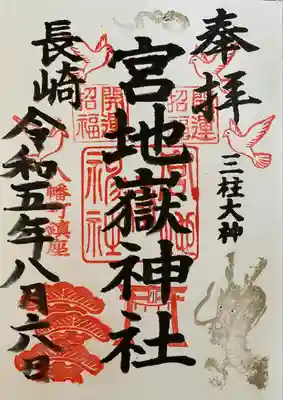 奉拝
三柱大神
開運
招福
宮地嶽神社
開運
招福
長崎
八幡町鎮座
令和五年八月六日